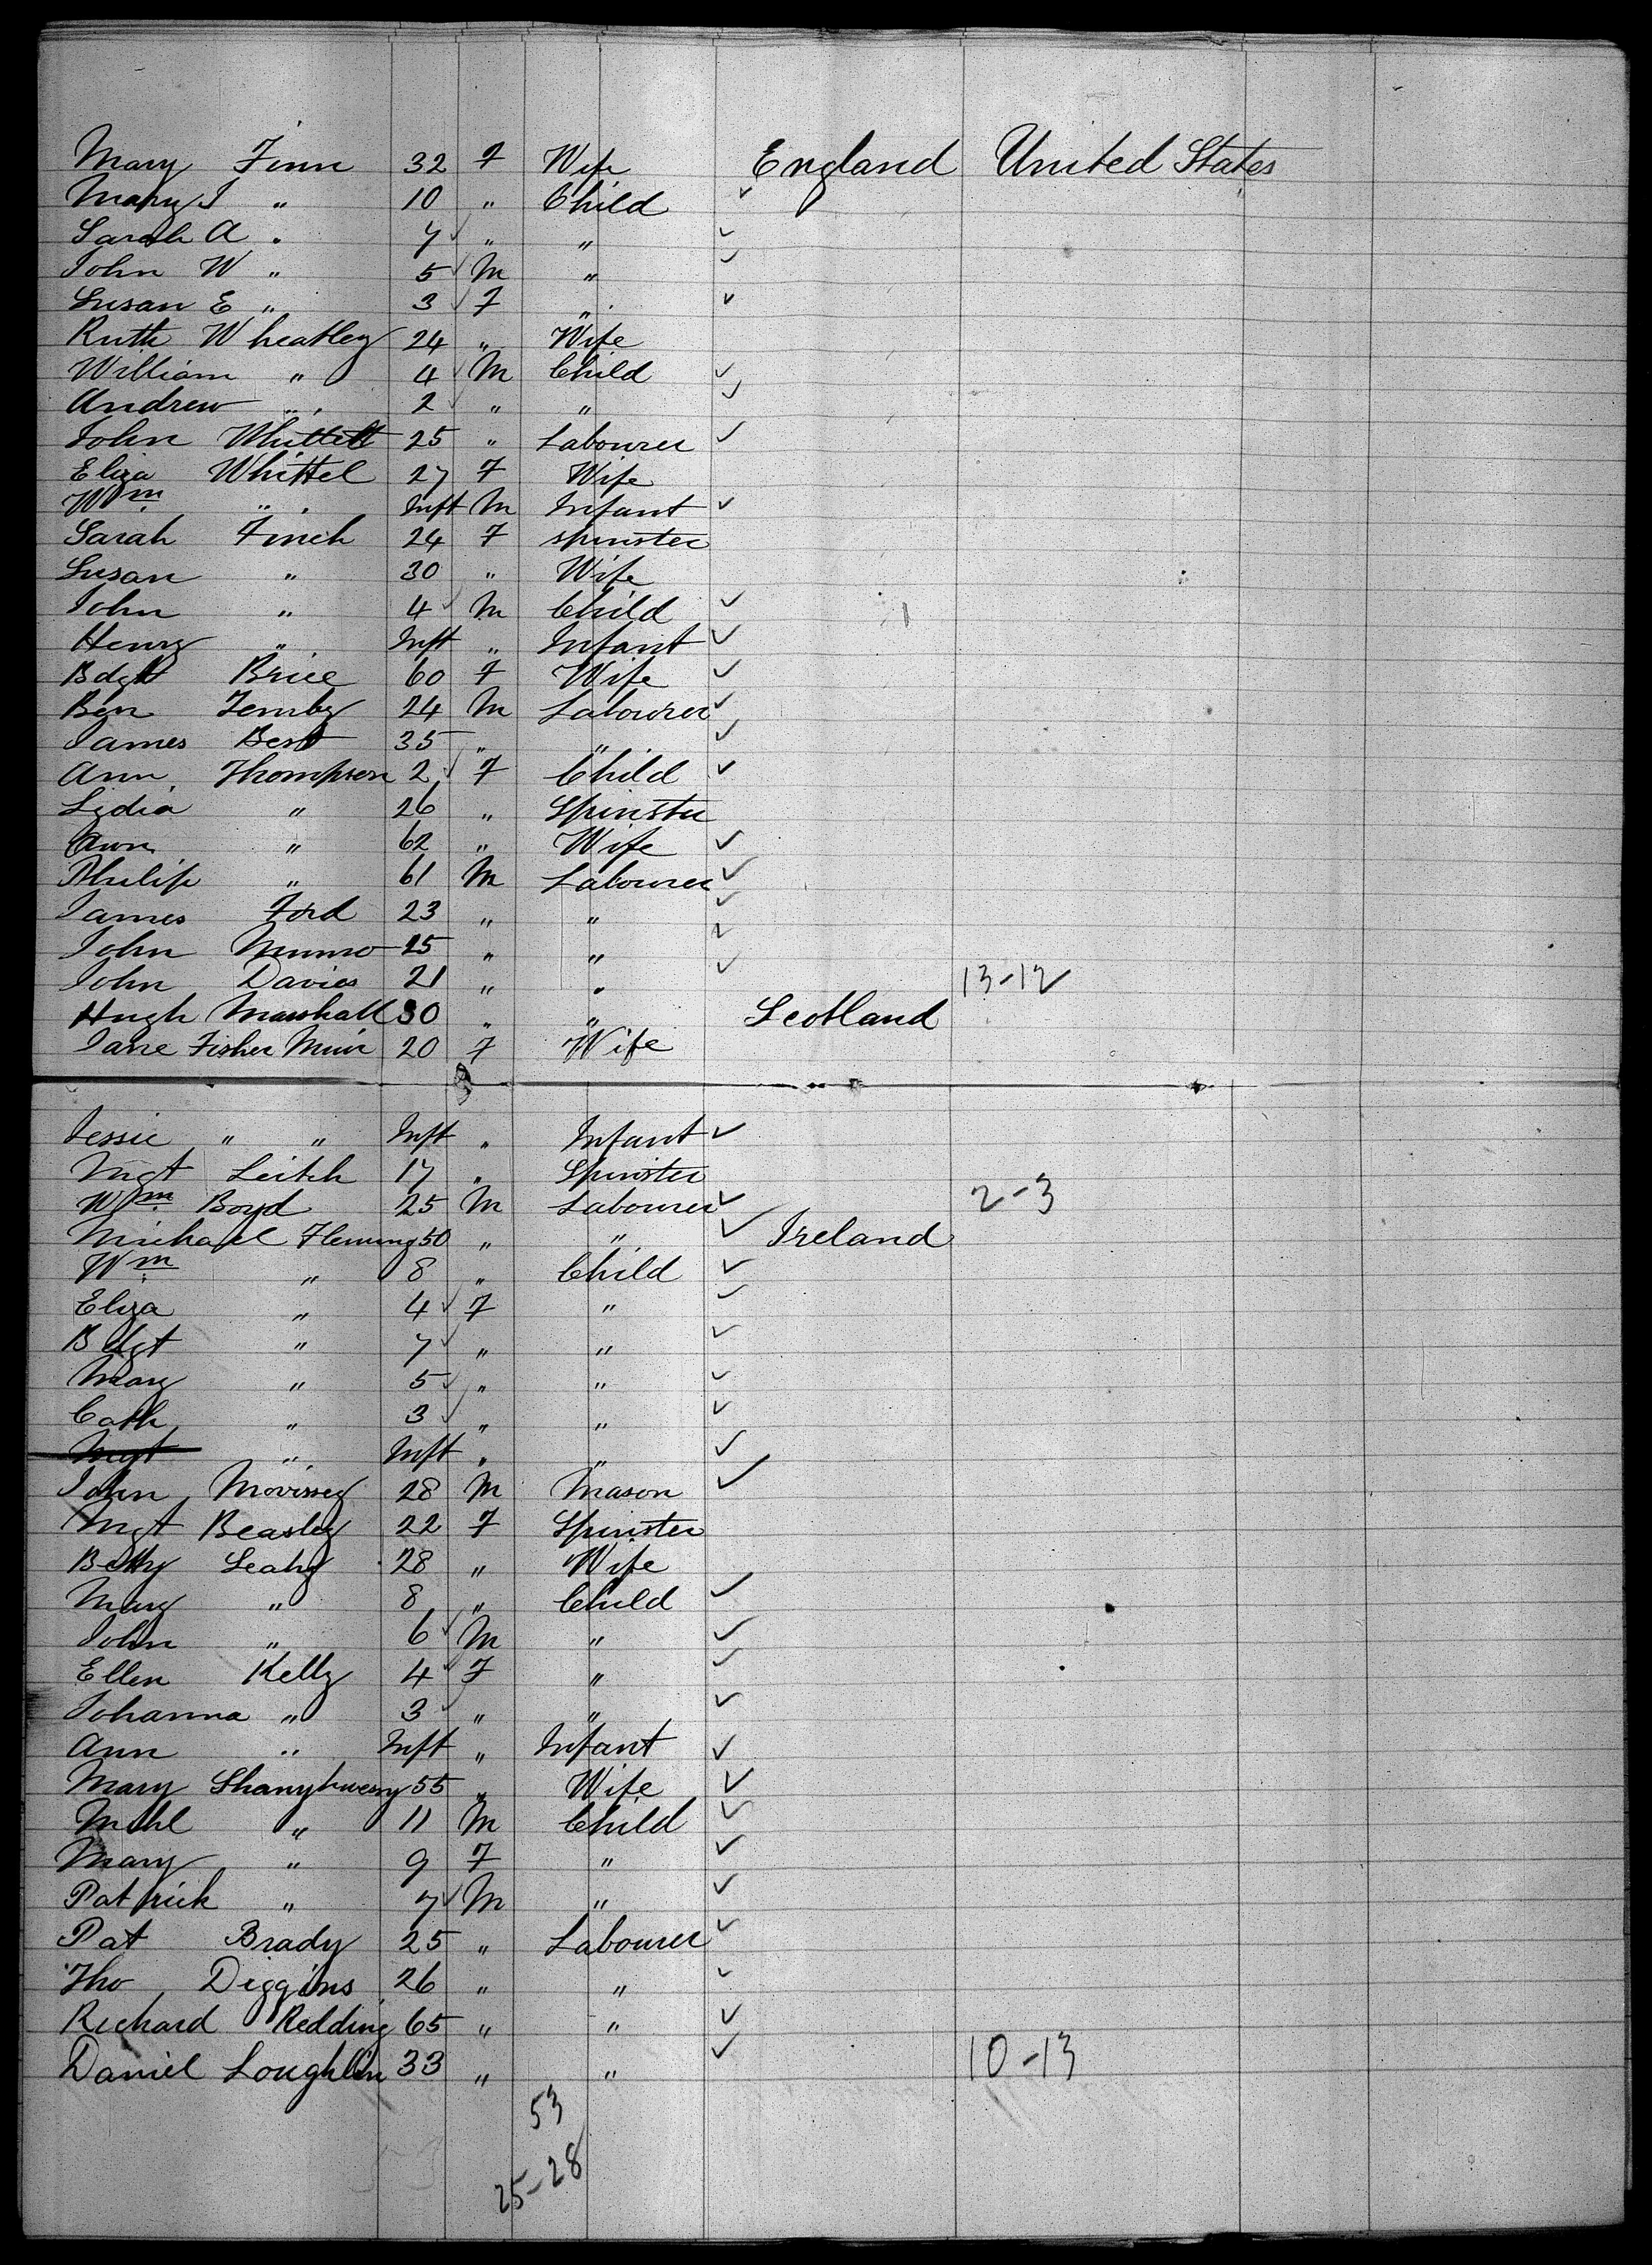 Mary Finn 32 F Wife England United States
Mary J " 10 " Child
Sarah A " 7 " "
John W " 5 M "
Susan E " 3 F "
Ruth Wheatley 24 " Wife
William " 4 M Child
Andrew " 2 " "
John Whittell 25 " Labourer
Eliza Whittel 27 F Wife
Wm " Inft M Infant
Sarah Finch 24 F Spinster
Susan " 30 " Wife
John " 4 M Child
Henry " Inft " Infant
Bdgt Brice 60 F Wife
Ben 24 M Labourer
James Best 35 " "
Ann Thompson 2 F Child
Lydia " 26 " Spinster
Ann " 62 " Wife
Philip " 61 M Labourer
James Ford 23 " "
John Munro 25 " "
John Davies 21 " " 13-12
Hugh Marshall 30 " " Scotland
Jane Fisher Muir 20 F Wife
Jessie " " Inft " Infant
Mgt Leitch 17 " Spinster
Wm Boyd 25 M Labourer 2-3
Michael Fleming 50 " " Ireland
Wm " 8 " Child
Eliza " 4 F "
Bdgt " 7 " "
Mary " 5 " "
Cath " 3 " "
Mgt " Inft " "
John Morissey 28 M Mason
Mgt Beasley 22 F Spinster
Betty Leahy 28 " Wife
Mary " 8 " Child
John " 6 M "
Ellen Kelly 4 F "
Johanna " 3 " "
Ann " Inft " Infant
Mary 55 " Wife
Michl " 11 M Child
Mary " 9 F "
Patrick " 7 M "
Pat Brady 25 " Labourer
Tho Diggins 26 " "
Richard Redding 65 " "
Daniel Loughlin 33 " " 10-13
53
25-28